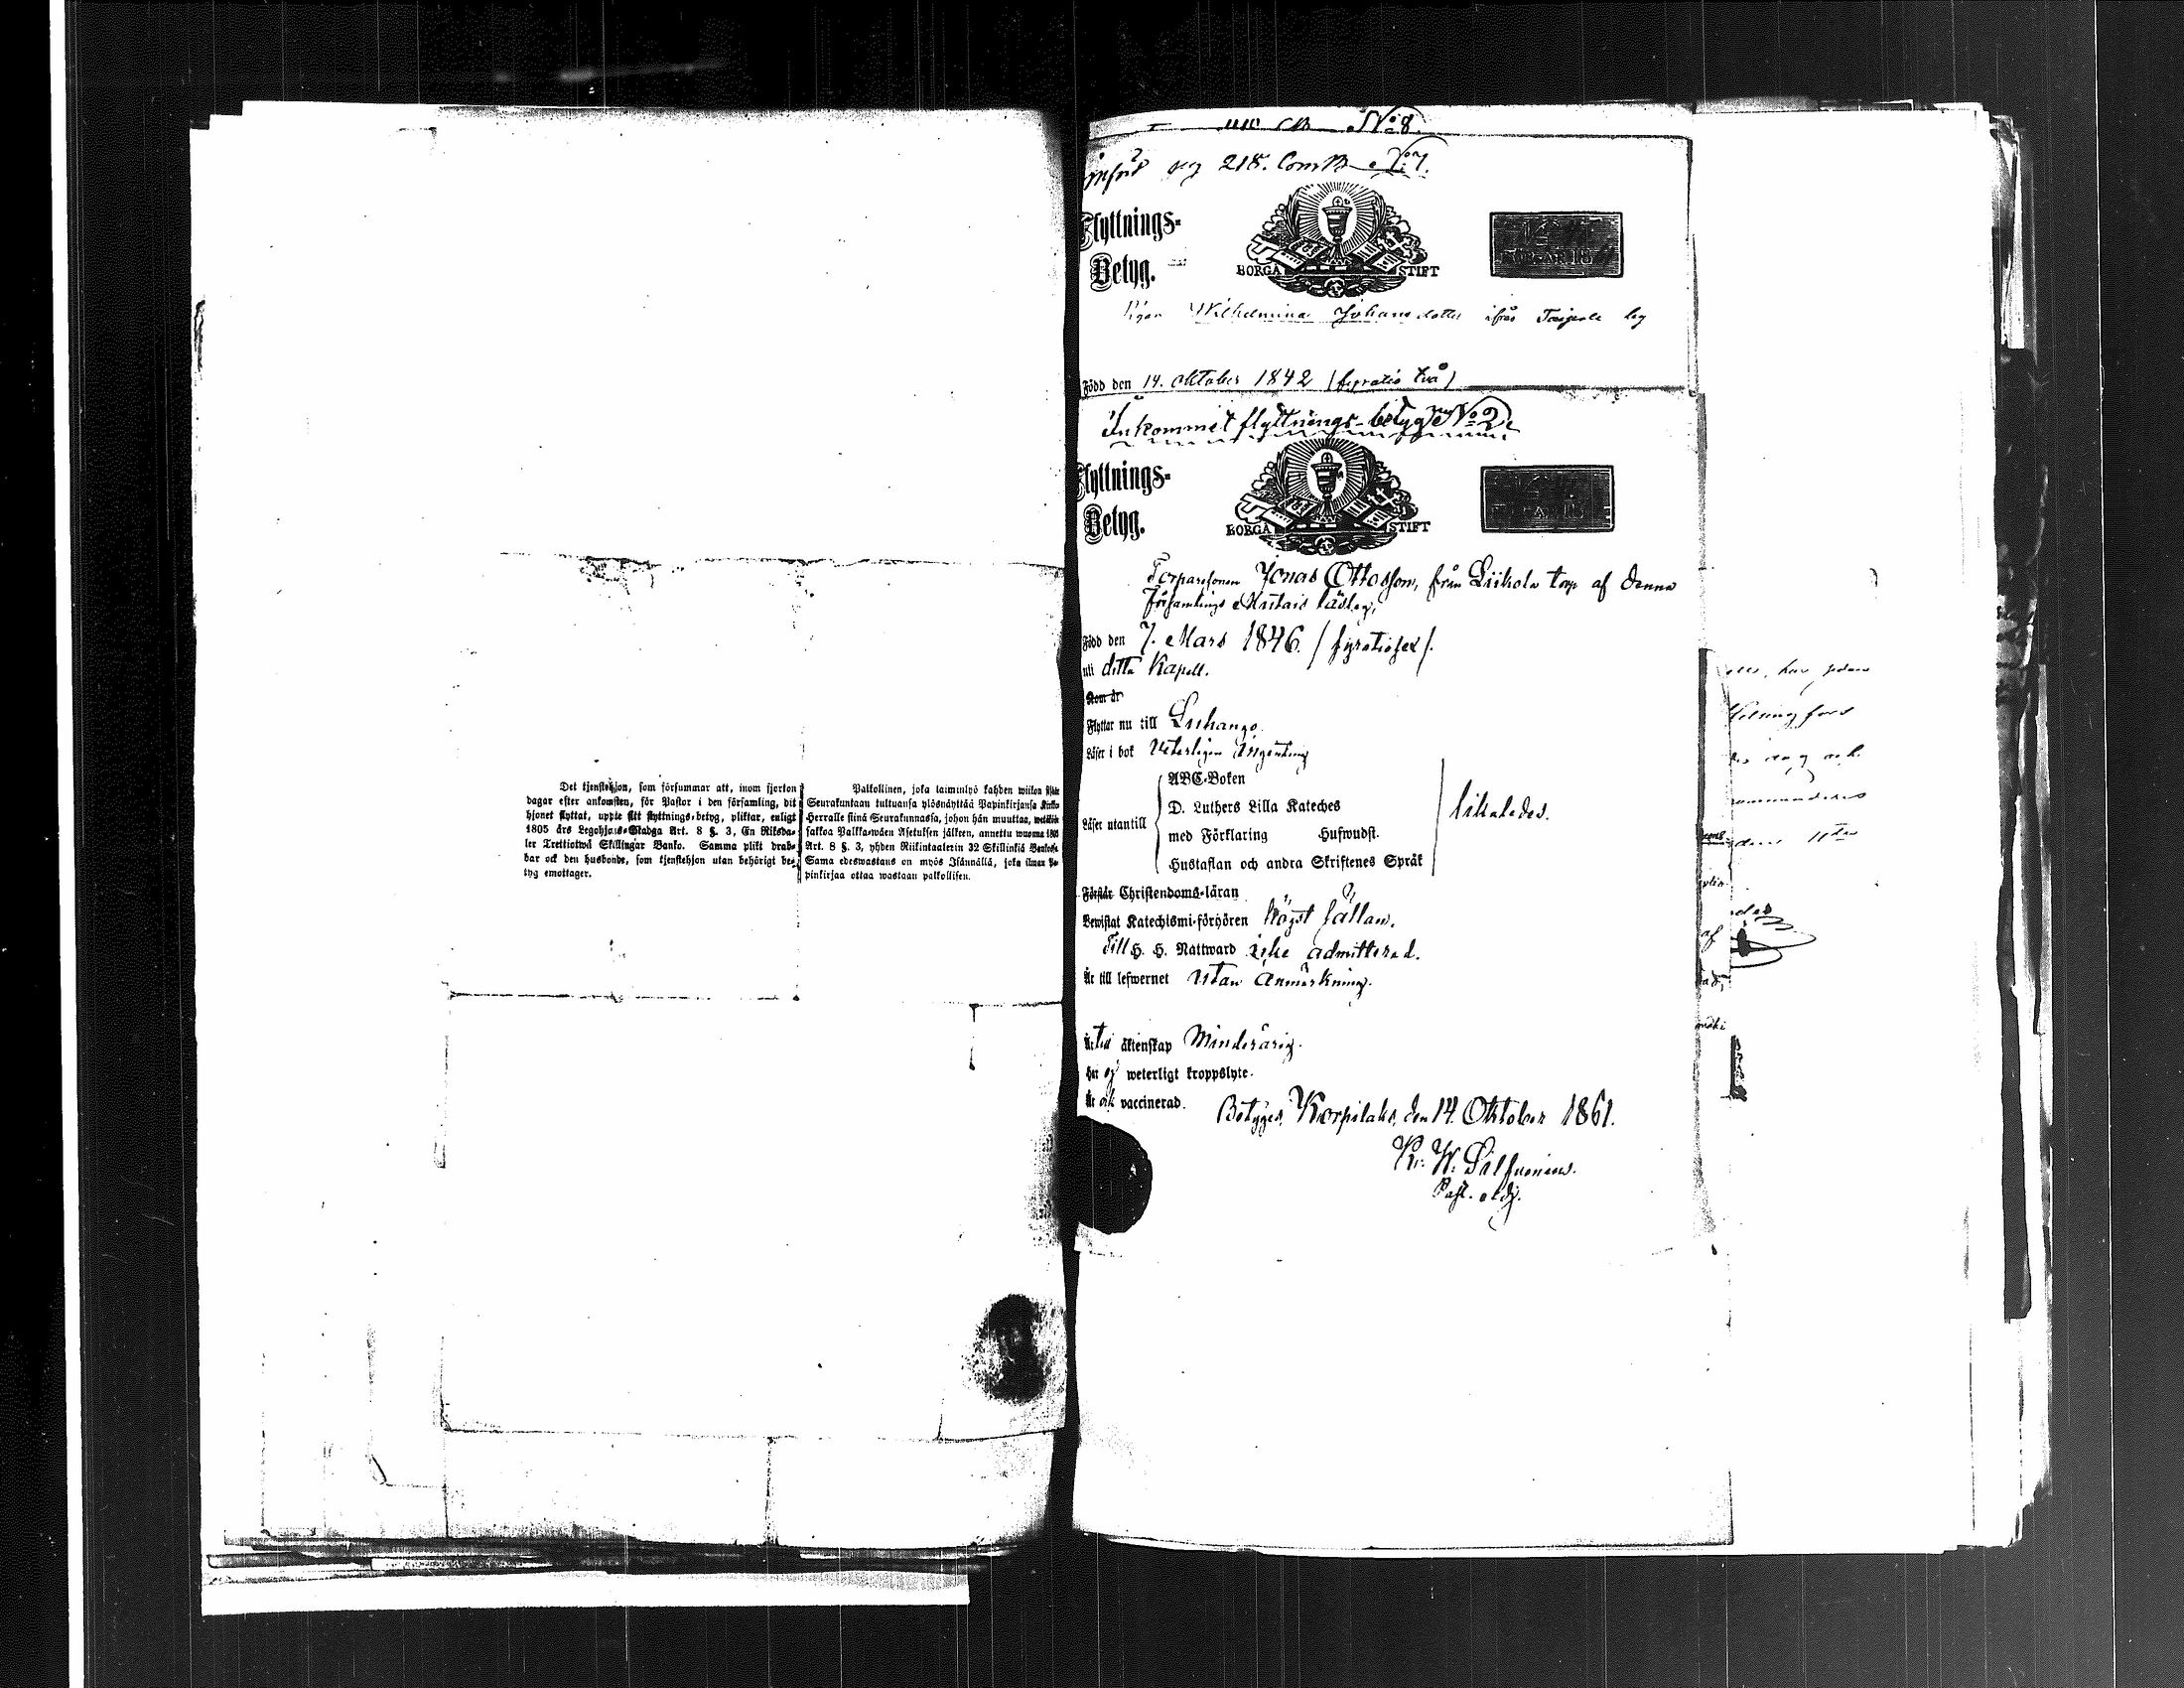 Det tjenstehjon, som försummar att, inom fjorton
dagar efter ankomsten, för Pastor i den församling, dit
hjonet flyttat, uppte sitt flyttnings-betyg, pliktar, enligt
1805 års Legohjons-Stadga Art. 8 §. 3, En Riksda-
ler Trettiotwå Skillingar Banko. Samma plikt drab-
bar ock den husbonde, som tjenstehjon utan behörigt be-
tyg emottager.
Palkollinen, joka laiminlyö kahden wiikon
Seurakuntaan tultuansa ylösnäyttää Papinkirjansa
Herralle siinä Seurakunnassa, johon hän muuttaa,
sakkoa Palkka-wäen Asetuksen jälkeen, annettu wuonna
Art. 8 §. 3, yhden Riikintaalerin 32 Skillinkiä
Sama edeswastaus on myös Isännällä, joka ilman
pinkirjaa ottaa wastaan palkollisen.
No 8
218. No 7.
Flyttnings-
Betyg.
BORGÅ STIFT
Pigan Wilhelmina Johansdotter ifrån
Född den 14. Oktober 1842 (fyratio två)
Inkommet flyttnings-betyg No 2
Flyttnings-
Betyg.
BORGÅ STIFT
Torparesonen Jonas Ottosson, från Liikola torp af denna
Församlings
Född den 7. Mars 1846. /fyratiosex/.
uti detta Kapell.
Kom år
Flyttar nu till Luhango.
Läser i bok
ABC-Boken
D. Luthers Lilla Kateches
Läser utantill
med Förklaring Hufwudst.
likaledes.
Hustaflan och andra Skriftenes Språk
Förstår Christendoms-läran
Bewistat Katechismi-förhören högst sällan.
Till H. H. Nattward icke admitterad.
Är till lefwernet utan Anmärkning.
Är till äktenskap Minderårig.
Har ej weterligt kroppslyte.
Är ock vaccinerad.
Betyges, Korpilaks, den 14. Oktober 1861.
K. W.
Past. adj.